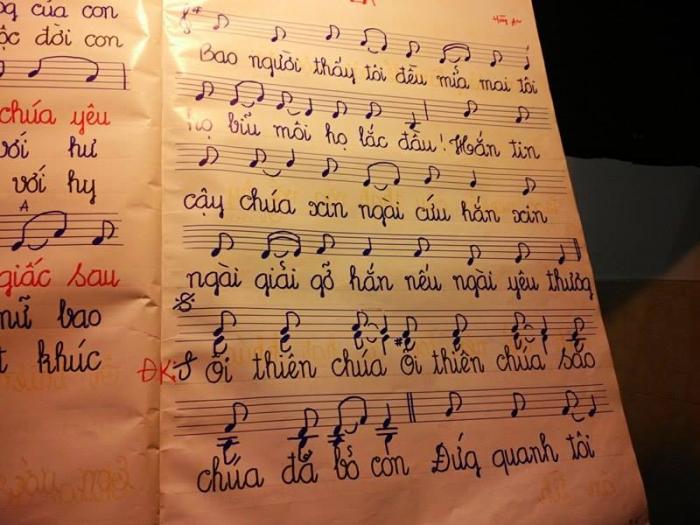 của con
ộc đời con
chúa yêu
với hư
với hy
A
giấc sau
nữ bao
khúc
Bao người thấy tôi đều mỉa mai tôi
họ bĩu môi họ lắc đầu! Hắn tin
cậy chúa xin ngài cứu hắn xin
ngài giải gỡ hắn nếu ngài yêu thương
ĐK: Ôi thiên chúa Ôi thiên chúa sao
chúa đã bỏ con Đứq quanh tôi